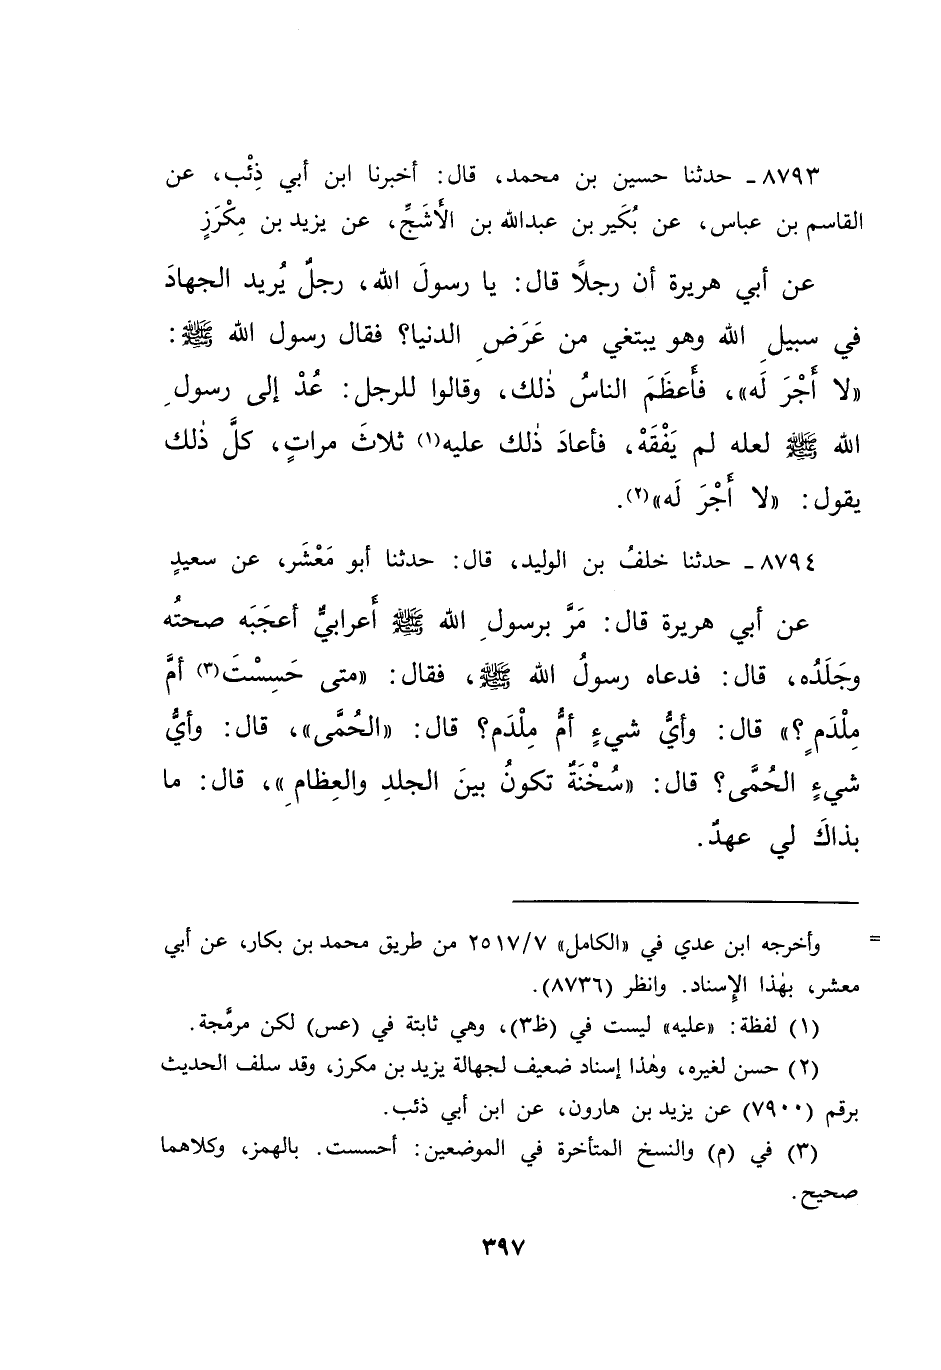 ٨٧٩٣ ـ حدثنا حسين بن محمد، قال: أخبرنا ابن أبي ذِئْب، عن
القاسم بن عباس، عن بُكَير بن عبدالله بن الأَشَجِّ، عن يزيد بن مِكْرَزٍ
عن أبي هريرة أن رجلًا قال: يا رسولَ الله، رجلٌ يُريد الجهادَ
في سبيلِ الله وهو يبتغي من عَرَضِ الدنيا؟ فقال رسول الله ﷺ:
«لا أَجْرَ لَه»، فأَعظَمَ الناسُ ذٰلك، وقالوا للرجل: عُدْ إلى رسولِ
الله ﷺ لعله لم يَفْقَهْ، فأعادَ ذٰلك عليه(١) ثلاثَ مراتٍ، كلَّ ذٰلك
يقول: «لا أَجْرَ لَه»(٢).
٨٧٩٤ ـ حدثنا خلفُ بن الوليد، قال: حدثنا أبو مَعْشَر، عن سعيدٍ
عن أبي هريرة قال: مَرَّ برسولِ الله ﷺ أَعرابيٌّ أعجَبَه صحتُه
وجَلَدُه، قال: فدعاه رسولُ الله ﷺ، فقال: «متى حَسِسْتَ(٣) أمَّ
مِلْدَمٍ؟» قال: وأيُّ شيءٍ أمُّ مِلْدَم؟ قال: «الحُمَّى»، قال: وأيُّ
شيءٍ الحُمَّى؟ قال: «سُخْنَةٌ تكونُ بينَ الجلدِ والعِظامِ»، قال: ما
بذاكَ لي عهدٌ.
= وأخرجه ابن عدي في «الكامل» ٢٥١٧/٧ من طريق محمد بن بكار، عن أبي
معشر، بهٰذا الإسناد. وانظر (٨٧٣٦).
(١) لفظة: «عليه» ليست في (ظ٣)، وهي ثابتة في (عس) لكن مرمَّجة.
(٢) حسن لغيره، وهٰذا إسناد ضعيف لجهالة يزيد بن مكرز، وقد سلف الحديث
برقم (٧٩٠٠) عن يزيد بن هارون، عن ابن أبي ذئب.
(٣) في (م) والنسخ المتأخرة في الموضعين: أحسست. بالهمز، وكلاهما
صحيح.
٣٩٧